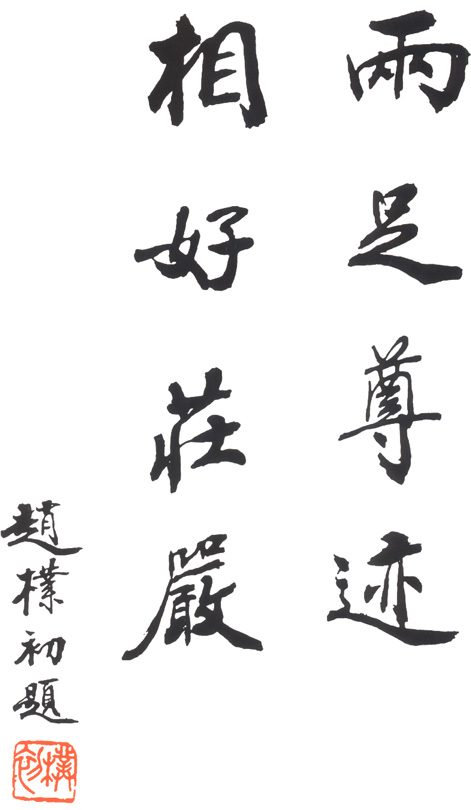 兩足尊迹
相好莊嚴
趙樸初題
樸初